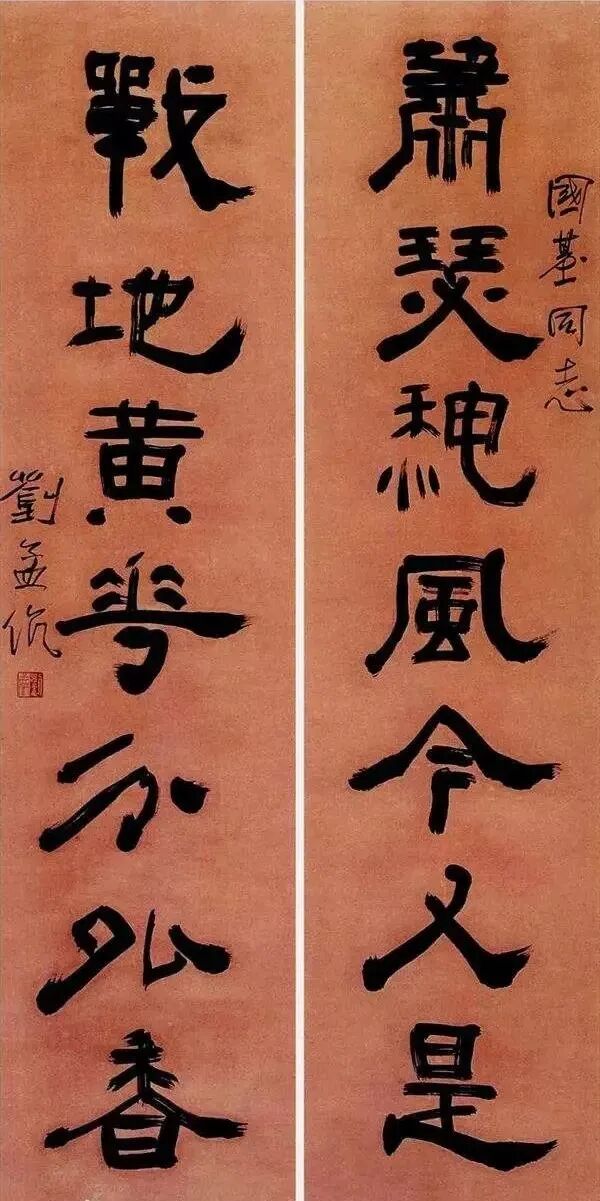 國基同志
蕭瑟秋風今又是
戰地黃花分外香
劉孟伉